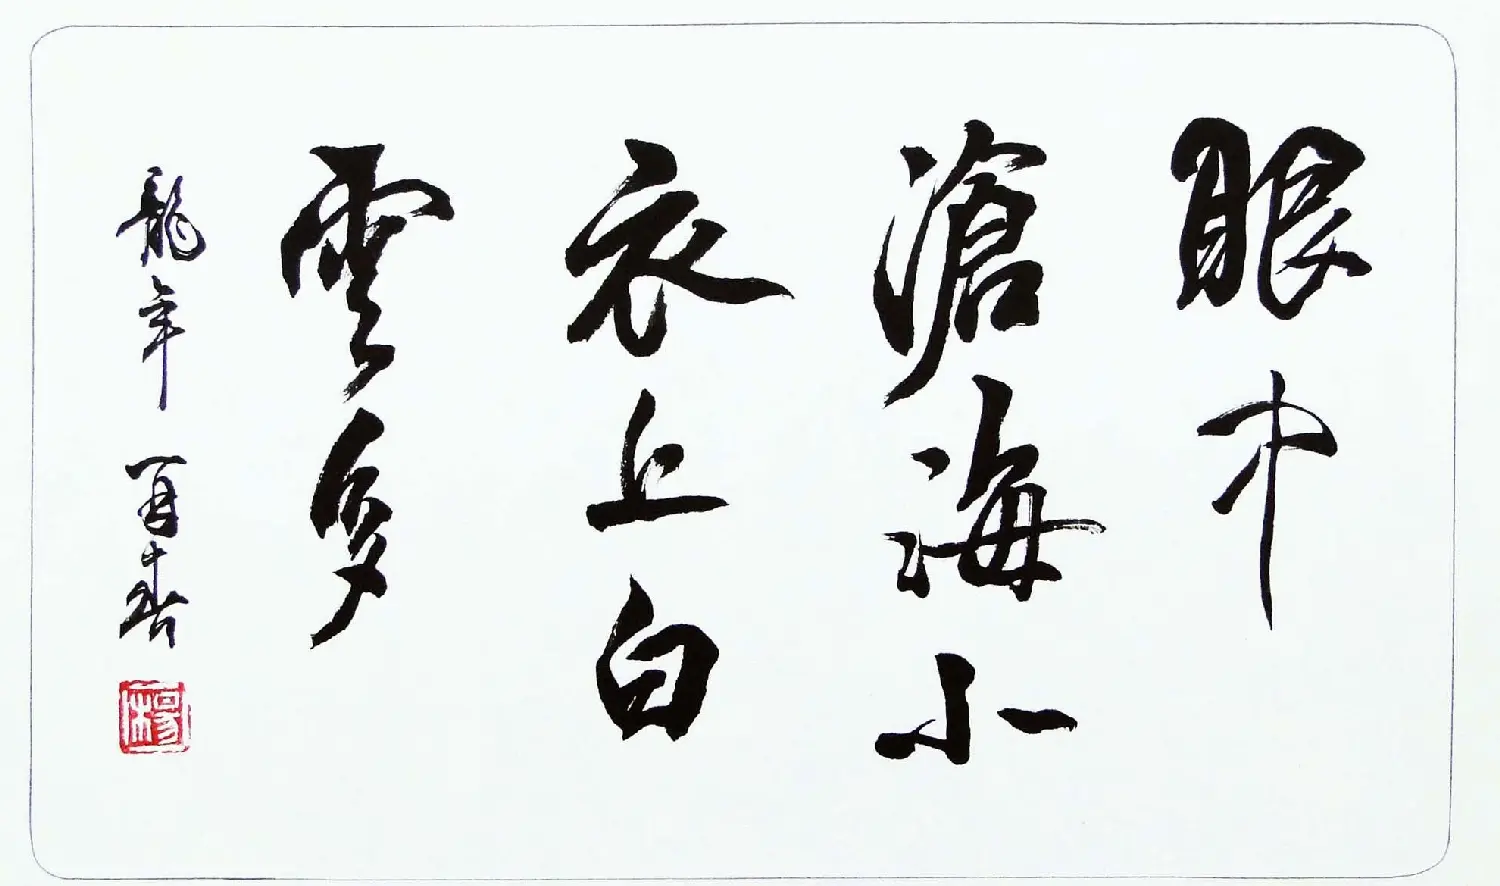 眼中
滄海小
衣上白
雲多
龍年 百春
楊